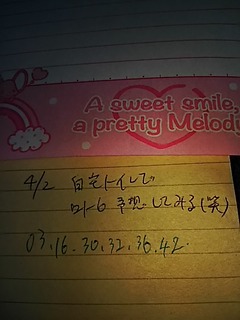 A sweet smile,
a pretty Melodi
4/2 自宅トイレで
ロト6 予想してみる(笑)
03.16.30.32.36.42.